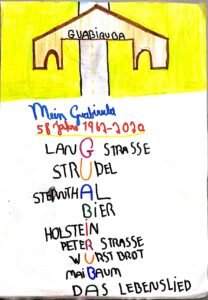 GUABIRUBA
Mein Guabiruba
58 Jahre 1962-2020
LANG STRASSE
STRUDEL
STEINTHAL
BiER
HOLSTEIN
PETER STRASSE
WURSTBROT
MaiBAUM
DAS LEBENSLIED